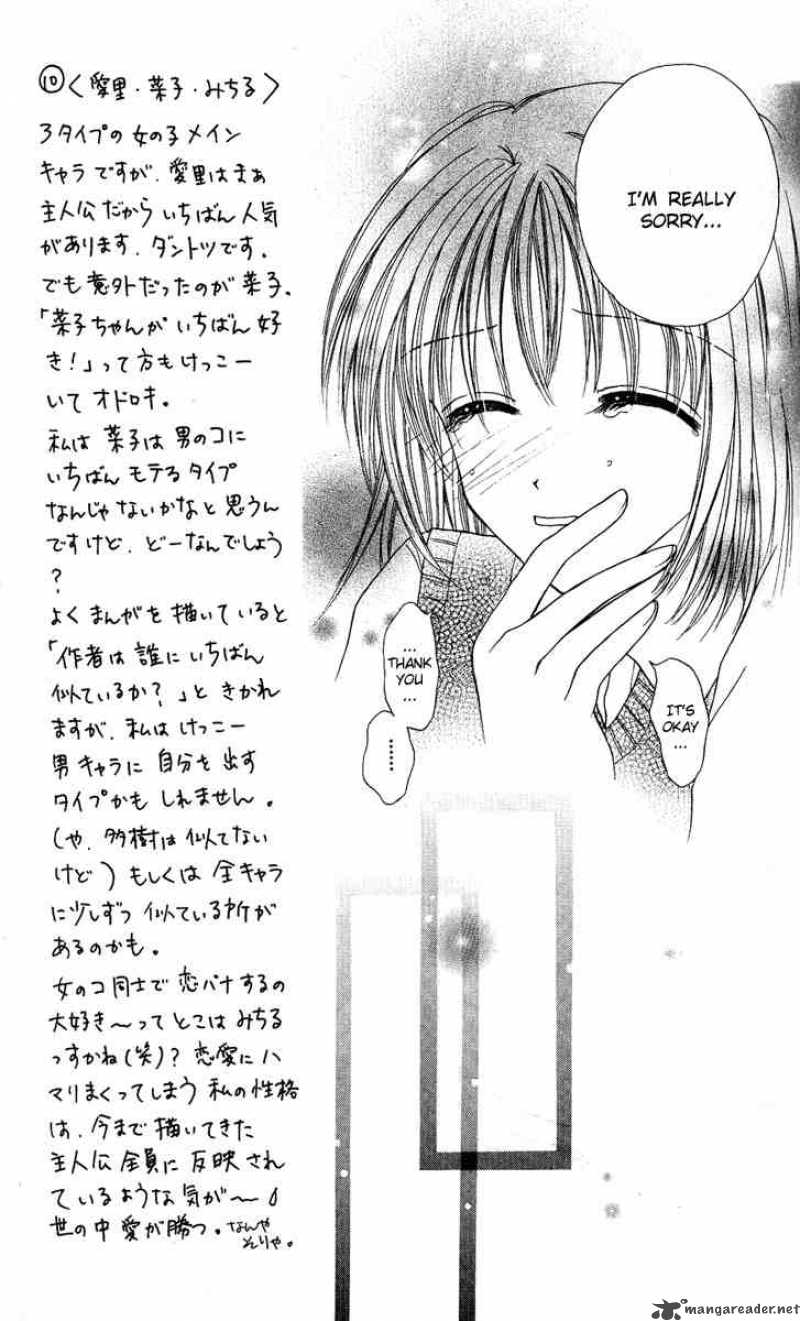 ⑩〈愛里・菜子・みちる〉
3タイプの女の子メイン
キャラですが、愛里はまぁ
主人公だから いちばん人気
があります。ダントツです。
でも意外だったのが菜子。
「菜子ちゃんが いちばん好
き!」って方もけっこー
いて オドロキ。
私は菜子は男のコに
いちばん モテるタイプ
なんじゃないかなと思うん
ですけど、どーなんでしょう
?
よくまんがを描いていると
「作者は誰にいちばん
似ているか?」と きかれ
ますが、私はけっこー
男キャラに自分を出す
タイプかもしれません。
(や、多樹は似てない
けど)もしくは全キャラ
に少しずつ似ている所が
あるのかも。
女のコ同士で恋バナするの
大好き〜ってとこはみちる
っすかね(笑)?恋愛にハ
マリまくってしまう私の性格
は、今まで描いてきた
主人公全員に反映され
ているような気が〜
世の中愛が勝つ。なんや
そりゃ。
I'M REALLY
SORRY...
...
THANK
YOU
...
.......
IT'S
OKAY
...
mangareader.net